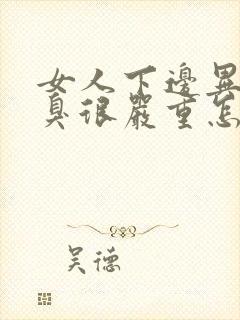 女人下邊異
臭很嚴重怎
吴德